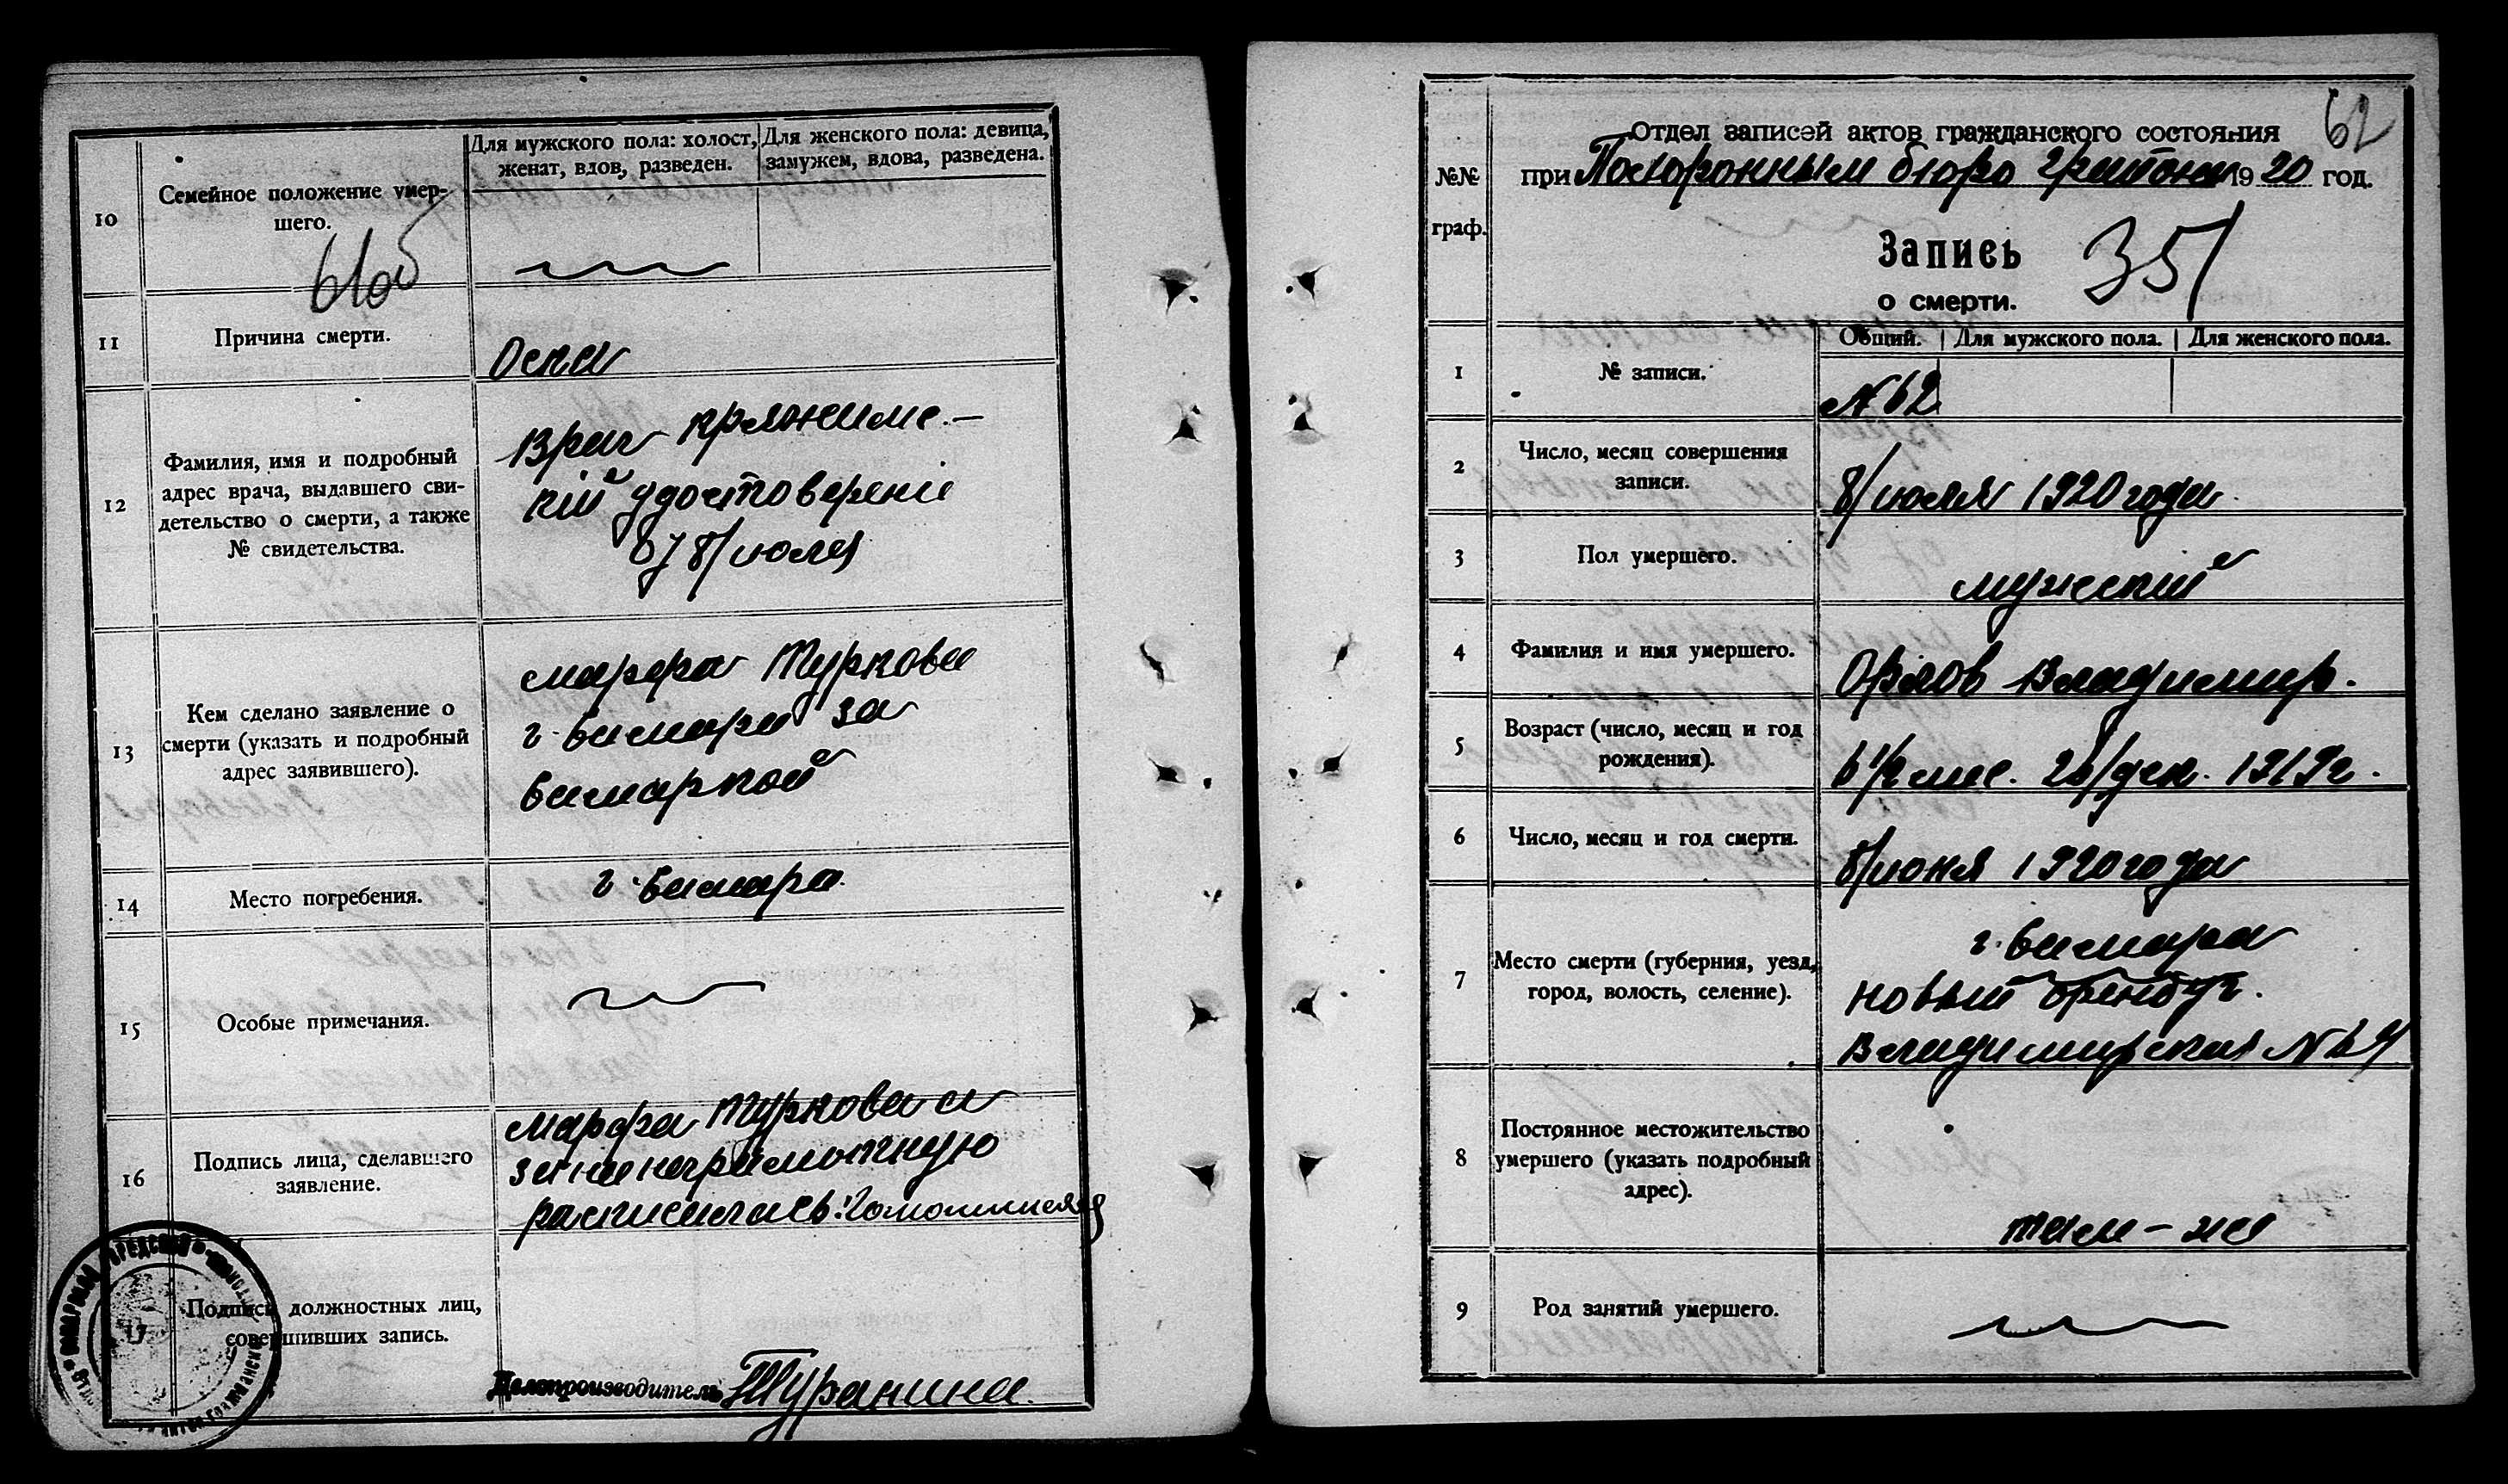 10
Семейное положение умер-
шего.
61об
Для мужского пола: холост,
женат, вдов, разведен.
Для женского пола: девица,
замужем, вдова, разведена.
11
Причина смерти.
Оспа
12
Фамилия, имя и подробный
адрес врача, выдавшего сви-
детельство о смерти, а также
№ свидетельства.
Врач Кряжимс-
кій удостоверяніе
от 8/июля
13
Кем сделано заявление о
смерти (указать и подробный
адрес заявившего).
Марфа Туркова
г. Самара за
Самаркой
14
Место погребения.
г. Самара
15
Особые примечания.
16
Подпись лица, сделавшего
заявление.
Марфа Туркова а
за неё неграмотную
расписалась:
17
Подписи должностных лиц,
совершивших запись.
Делопроизводитель Шуранина
62
№№
граф.
Отдел записей актов гражданского состояния
при Похоронным бюро 2 района 1920 год.
Запись
о смерти.
351
1
№ записи.
Общий. Для мужского пола. Для женского пола.
№ 62
2
Число, месяц совершения
записи.
8/июля 1920 года
3
Пол умершего.
мужской
4
Фамилия и имя умершего.
Орлов Владимир.
5
Возраст (число, месяц и год
рождения).
6 1/2 мес. 26/дек. 1919 г.
6
Число, месяц и год смерти.
8/июня 1920 года
7
Место смерти (губерния, уезд,
город, волость, селение).
г. Самара
новый Оренбург.
Владимирская № 64
8
Постоянное местожительство
умершего (указать подробный
адрес).
там-же
9
Род занятий умершего.